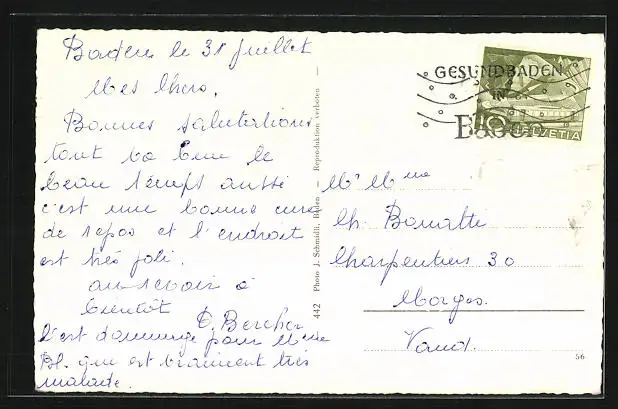 Baden le 31 Juillet
Mes chers,
Bonnes salutations
tout va bien le
beau temps aussi
c'est une bonne cure
de repos et l'endroit
est très joli.
au revoir à
bientôt
Bercher
C'est dommage pour Mme
Bl. qui est vraiment très
malade.
442 Photo J. Schmidli, Baden – Reproduktion verboten
GESUNDBADEN
IN
BADEN
HELVETIA
Mr Mme
Ch. Bonatte
Charpentiers 30
Morges.
Vaud.
56